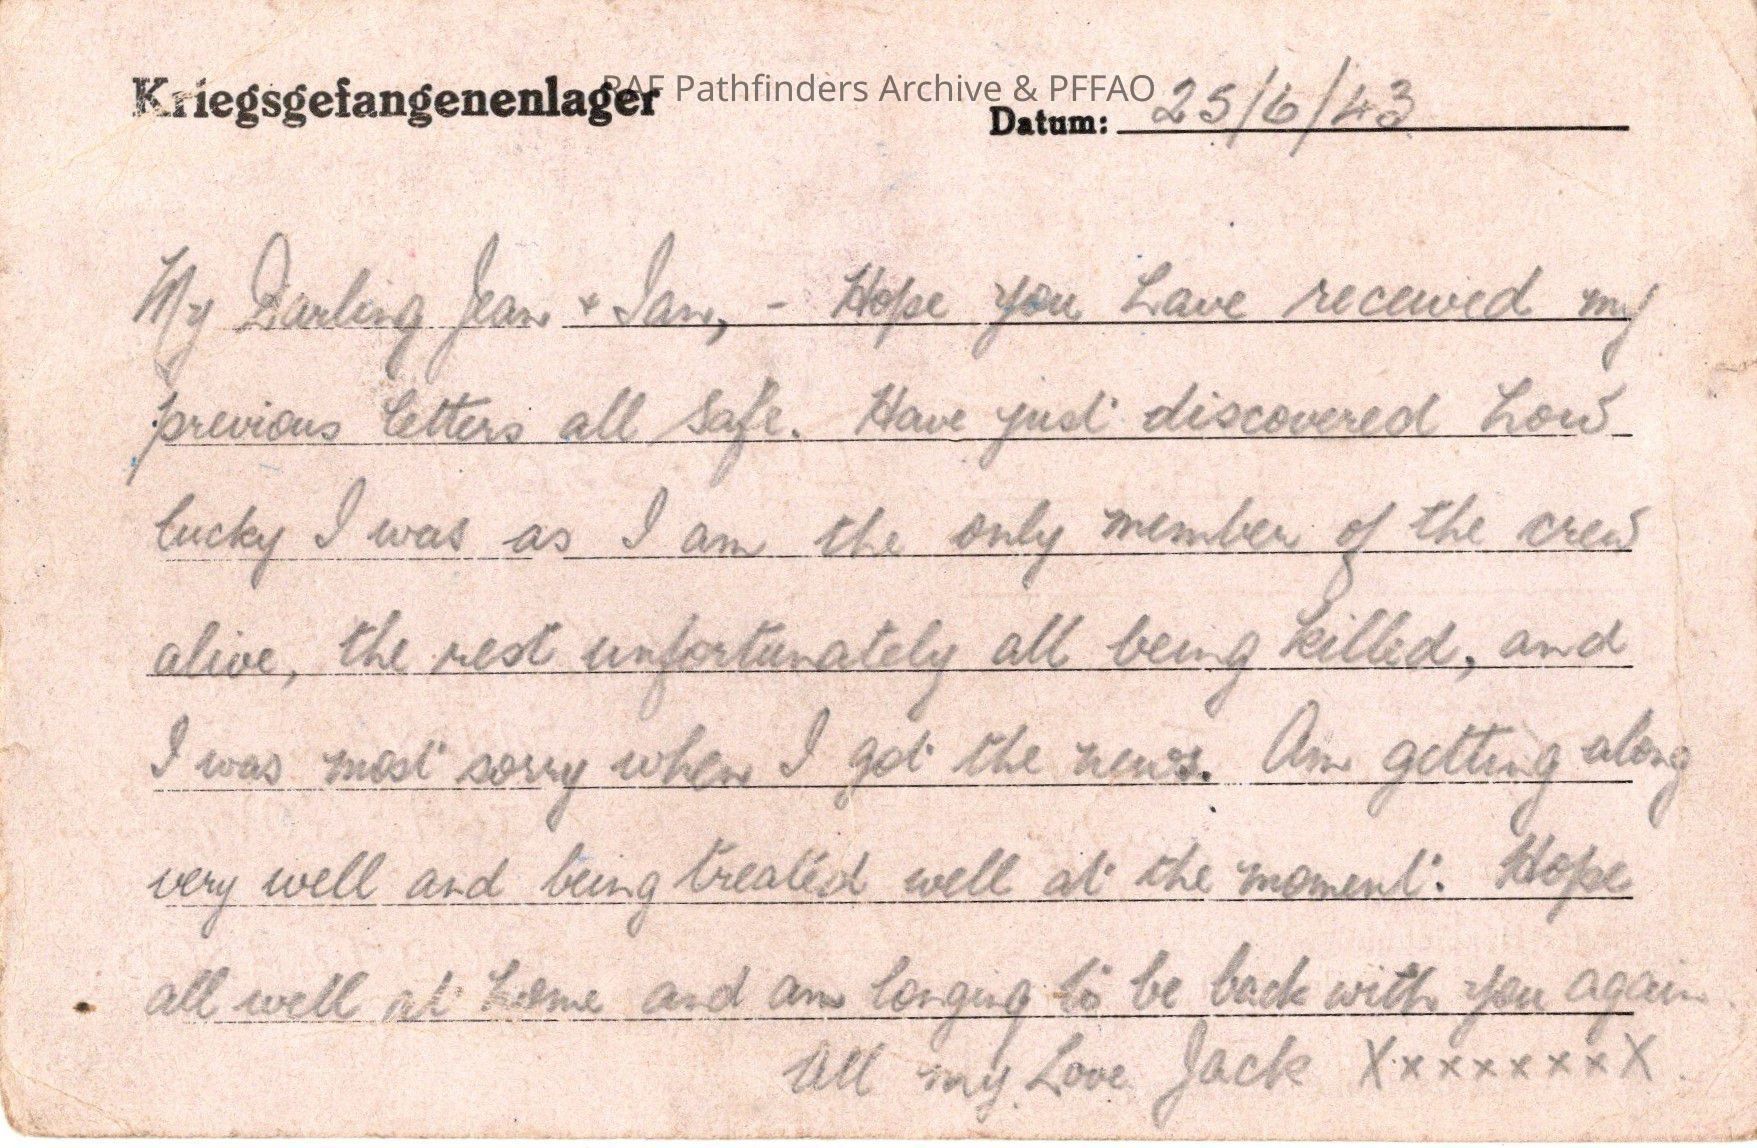 Kriegsgefangenenlager
RAF Pathfinders Archive & PFFAO
Datum: 25/6/43
My Darling Jean + Ian, - Hope you have received my
previous letters all safe. Have just discovered how
lucky I was as I am the only member of the crew
alive, the rest unfortunately all being killed, and
I was most sorry when I got the news. Am getting along
very well and being treated well at the moment. Hope
all well at home and am longing to be back with you again.
All my Love Jack XxxxxxxxX.